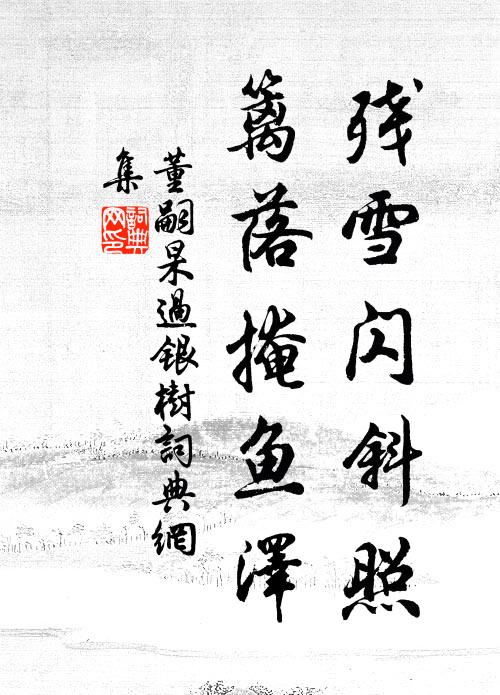 残雪闪斜照
篱落掩鱼泽
董嗣杲過银樹詞典網
集
詞典网印